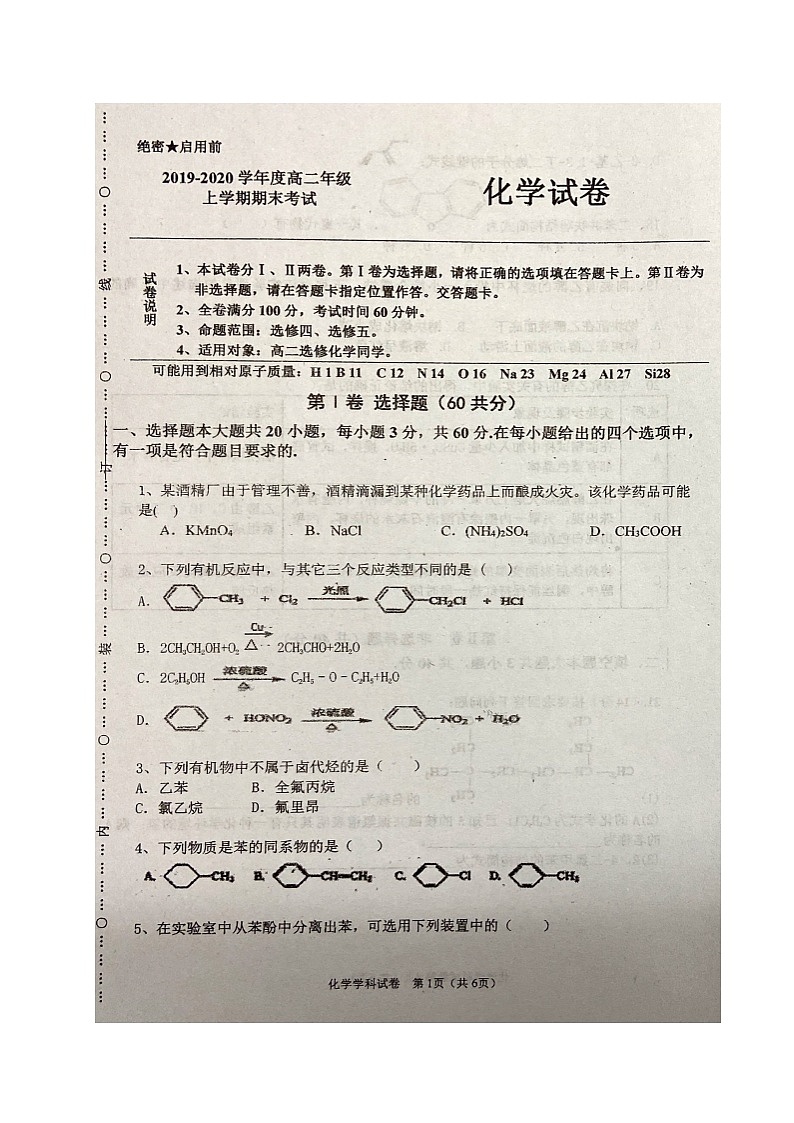 绝密★启用前
2019-2020 学年度高二年级
上学期期末考试
化学试卷
试卷说明
1、本试卷分Ⅰ、Ⅱ两卷。第Ⅰ卷为选择题，请将正确的选项填在答题卡上。第Ⅱ卷为
非选择题，请在答题卡指定位置作答。交答题卡。
2、全卷满分 100 分，考试时间 60 分钟。
3、命题范围：选修四、选修五。
4、适用对象：高二选修化学同学。
可能用到相对原子质量：H 1 B 11 C 12 N 14 O 16 Na 23 Mg 24 Al 27 Si28
第Ⅰ卷 选择题（60 共分）
一、选择题本大题共 20 小题，每小题 3 分，共 60 分.在每小题给出的四个选项中，
有一项是符合题目要求的.
1、某酒精厂由于管理不善，酒精滴漏到某种化学药品上而酿成火灾。该化学药品可能
是( )
A．KMnO4 B．NaCl C．(NH4)2SO4 D．CH3COOH
2、下列有机反应中，与其它三个反应类型不同的是（ ）
A． CH3 + Cl2 光照 CH2Cl + HCl
B．2CH3CH2OH+O2 Cu △ 2CH3CHO+2H2O
C．2C2H5OH 浓硫酸 △ C2H5－O－C2H5+H2O
D． + HONO2 浓硫酸 △ NO2 + H2O
3、下列有机物中不属于卤代烃的是（ ）
A．乙苯 B．全氟丙烷
C．氯乙烷 D．氟里昂
4、下列物质是苯的同系物的是（ ）
A. CH3 B. CH=CH2 C. Cl D. CH3
5、在实验室中从苯酚中分离出苯，可选用下列装置中的（ ）
化学学科试卷 第 1页（共 6页）
线
订
装
内